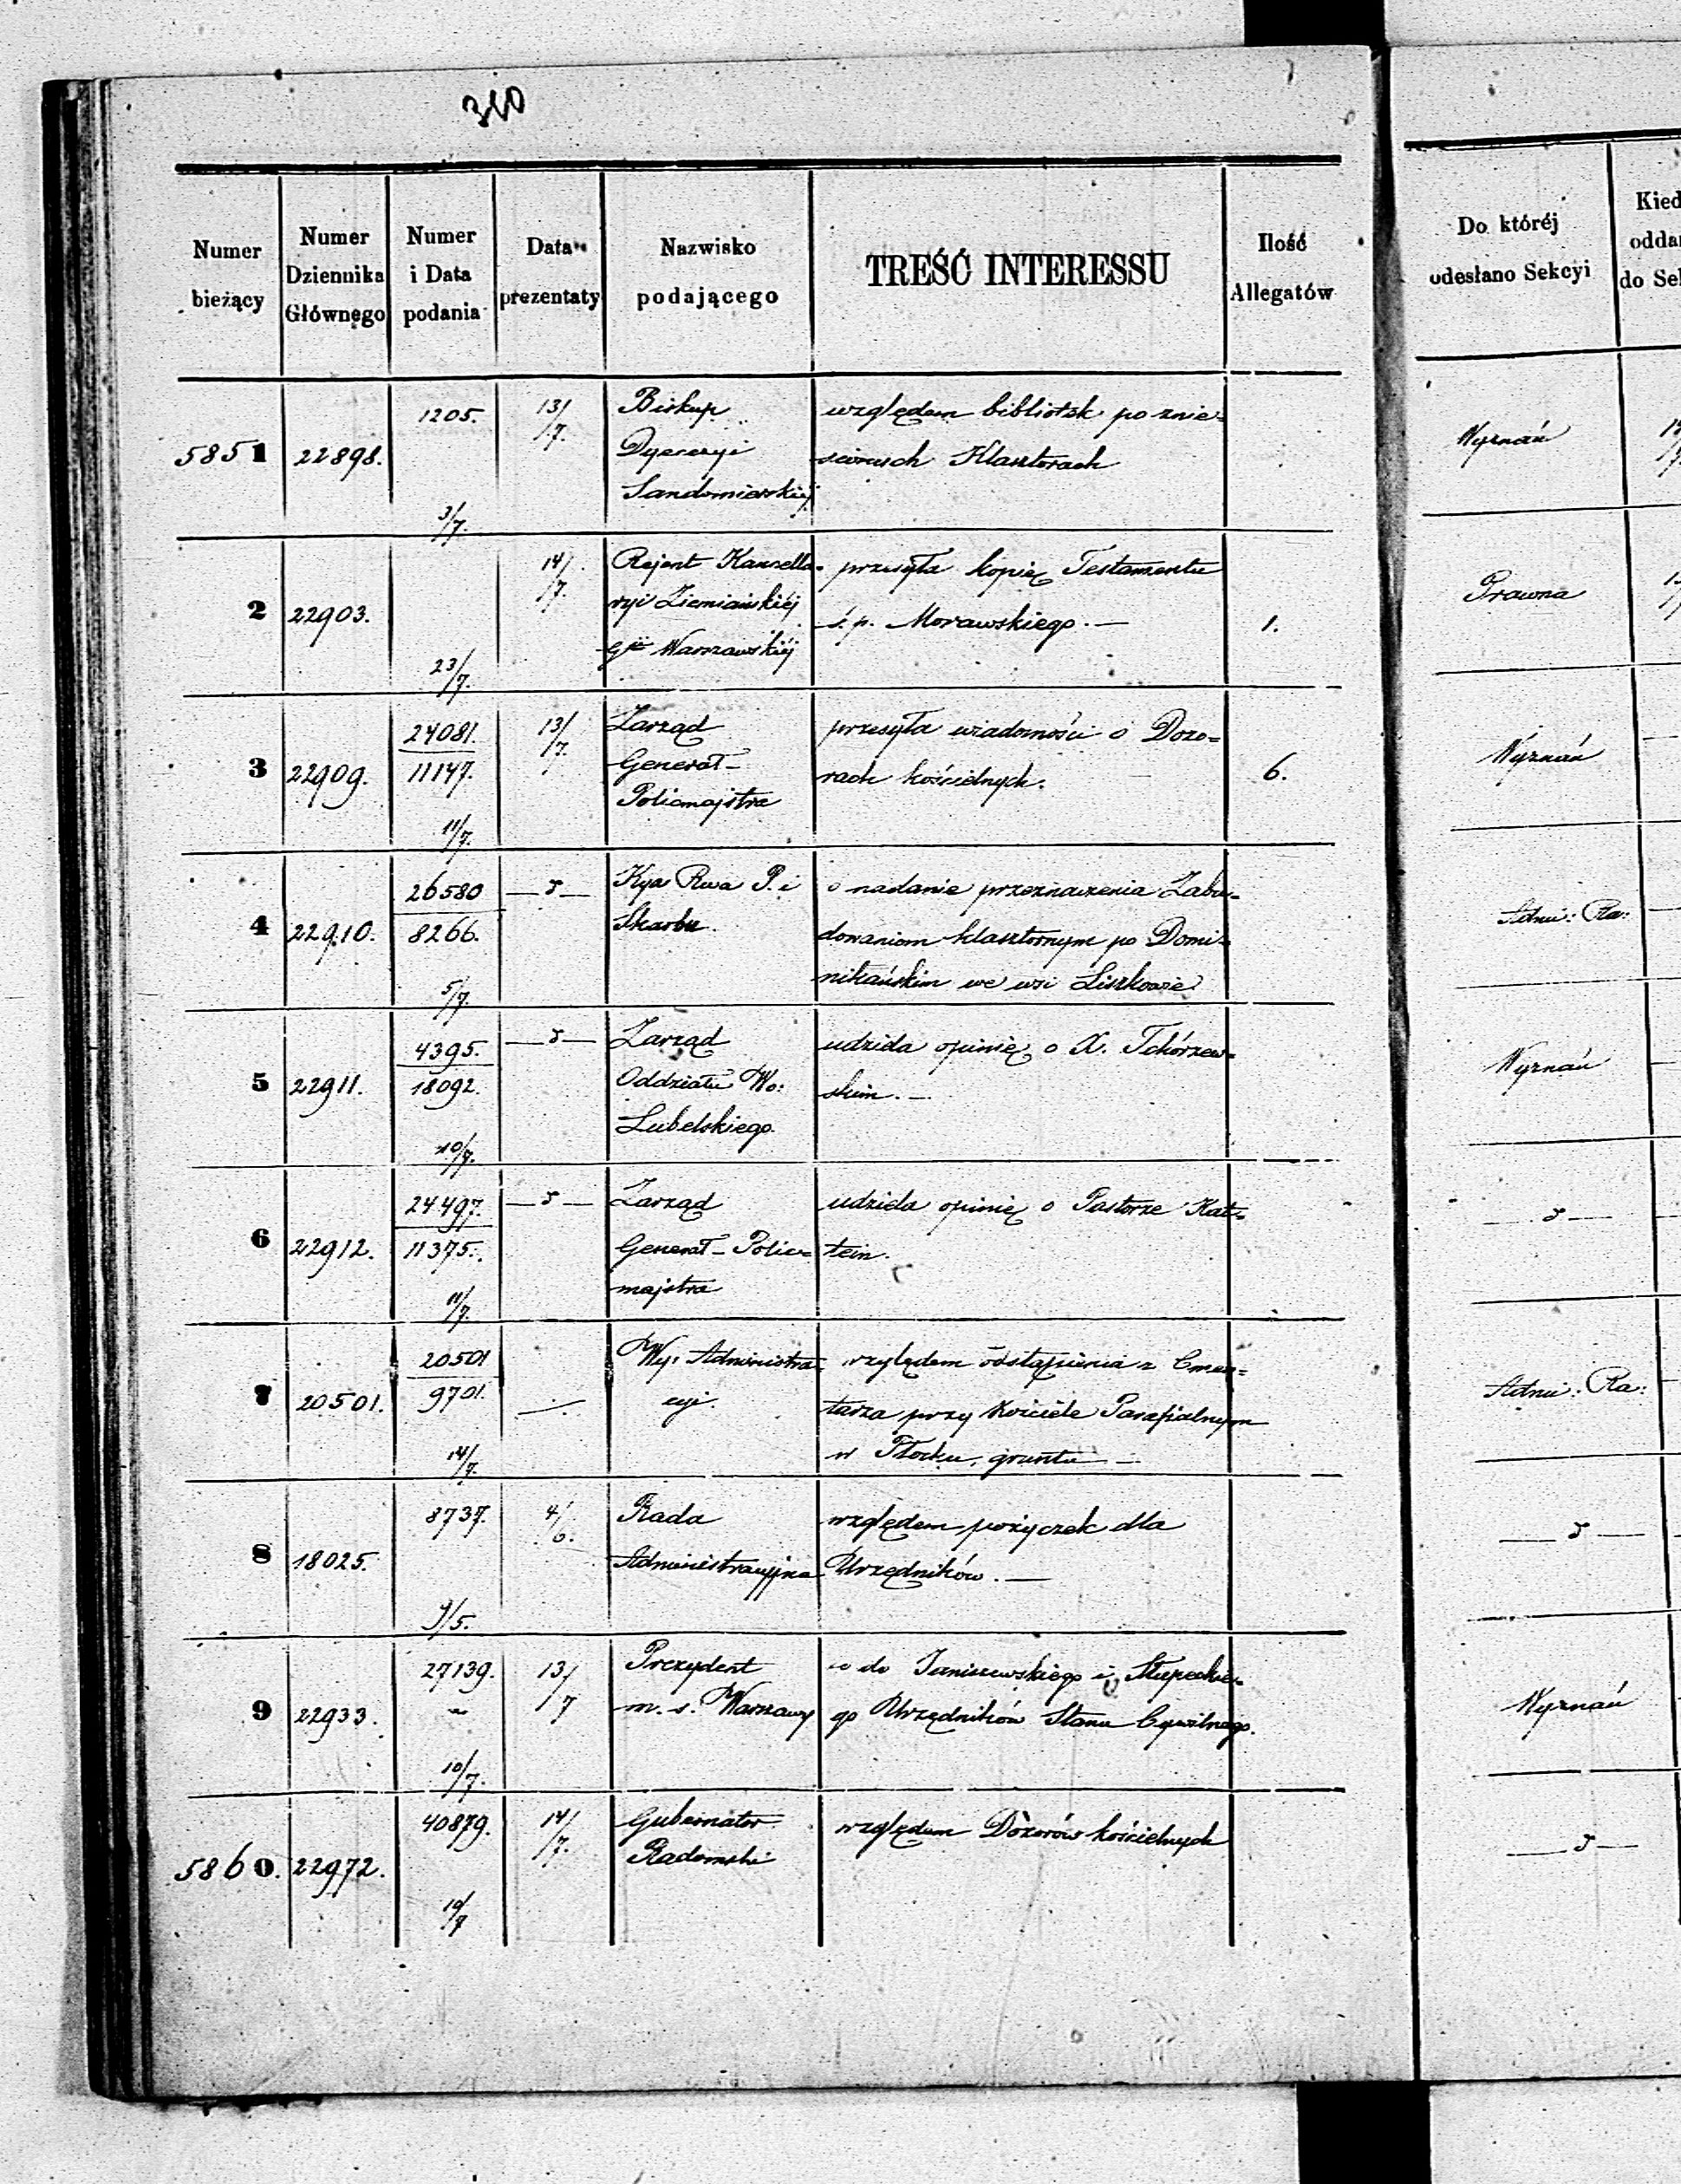 310
Numer bieżący | Numer Dziennika Głównego | Numer i Data podania | Data prezentaty | Nazwisko podającego | TREŚĆ INTERESSU | Ilość Allegatów | Do któréj odesłano Sekcyi | Kied odda do Se
5851 | 22898. | 1205. 3/7. | 13/7. | Biskup | względem bibliotek po znie-
Dyecezyi | sionych Klasztorach | Wyznań
Sandomierskiéj
2 | 22903. | 23/7. | 14/7. | Rejent Kancella- | przesyła kopię Testamentu
ryi Ziemiańskiéj | ś. p. Morawskiego. — | 1. | Prawna
Warszawskiéj
3 | 22909. | 24081. 11147. 11/7. | 13/7. | Zarząd | przesyła wiadomości o Dozo-
Generał- | rach kościelnych. | 6. | Wyznań
Policmajstra
4 | 22910. | 26580 8266. 5/7. | Kya Rwa P. i | o nadanie przeznaczenia Zabu-
Skarbu. | dowaniom klasztornym po Domi- | Admi: Ra:
nikańskim we wsi Liszkowie
5 | 22911. | 4395. 18092. 10/7. | Zarząd | udziela opinię o X. Tchórzew-
Oddziału Wo: | skim. — | Wyznań
Lubelskiego.
6 | 22912. | 24497. 11375. 11/7. | Zarząd | udziela opinię o Pastorze Kat-
Generał-Polic- | tein.
majstra
7 | 20501. | 20501 9701. 14/7. | Wy: Administra- | względem odstąpienia z Cmen-
cyi. | tarza przy Kościele Parafialnym | Admi: Ra:
w Płocku, gruntu —
8 | 18025. | 8737. /5. | 4/6. | Rada | względem pożyczek dla
Administracyjna | Urzędników. —
9 | 22933. | 27139. 10/7. | 13/7 | Prezydent | co do Janiszewskiego i Słupeckie-
m. s. Warszawy | go Urzędników Stanu Cywilnego. | Wyznań
5860. | 22972. | 40879. | 14/7. | Gubernator | względem Dozorów kościelnych
Radomski